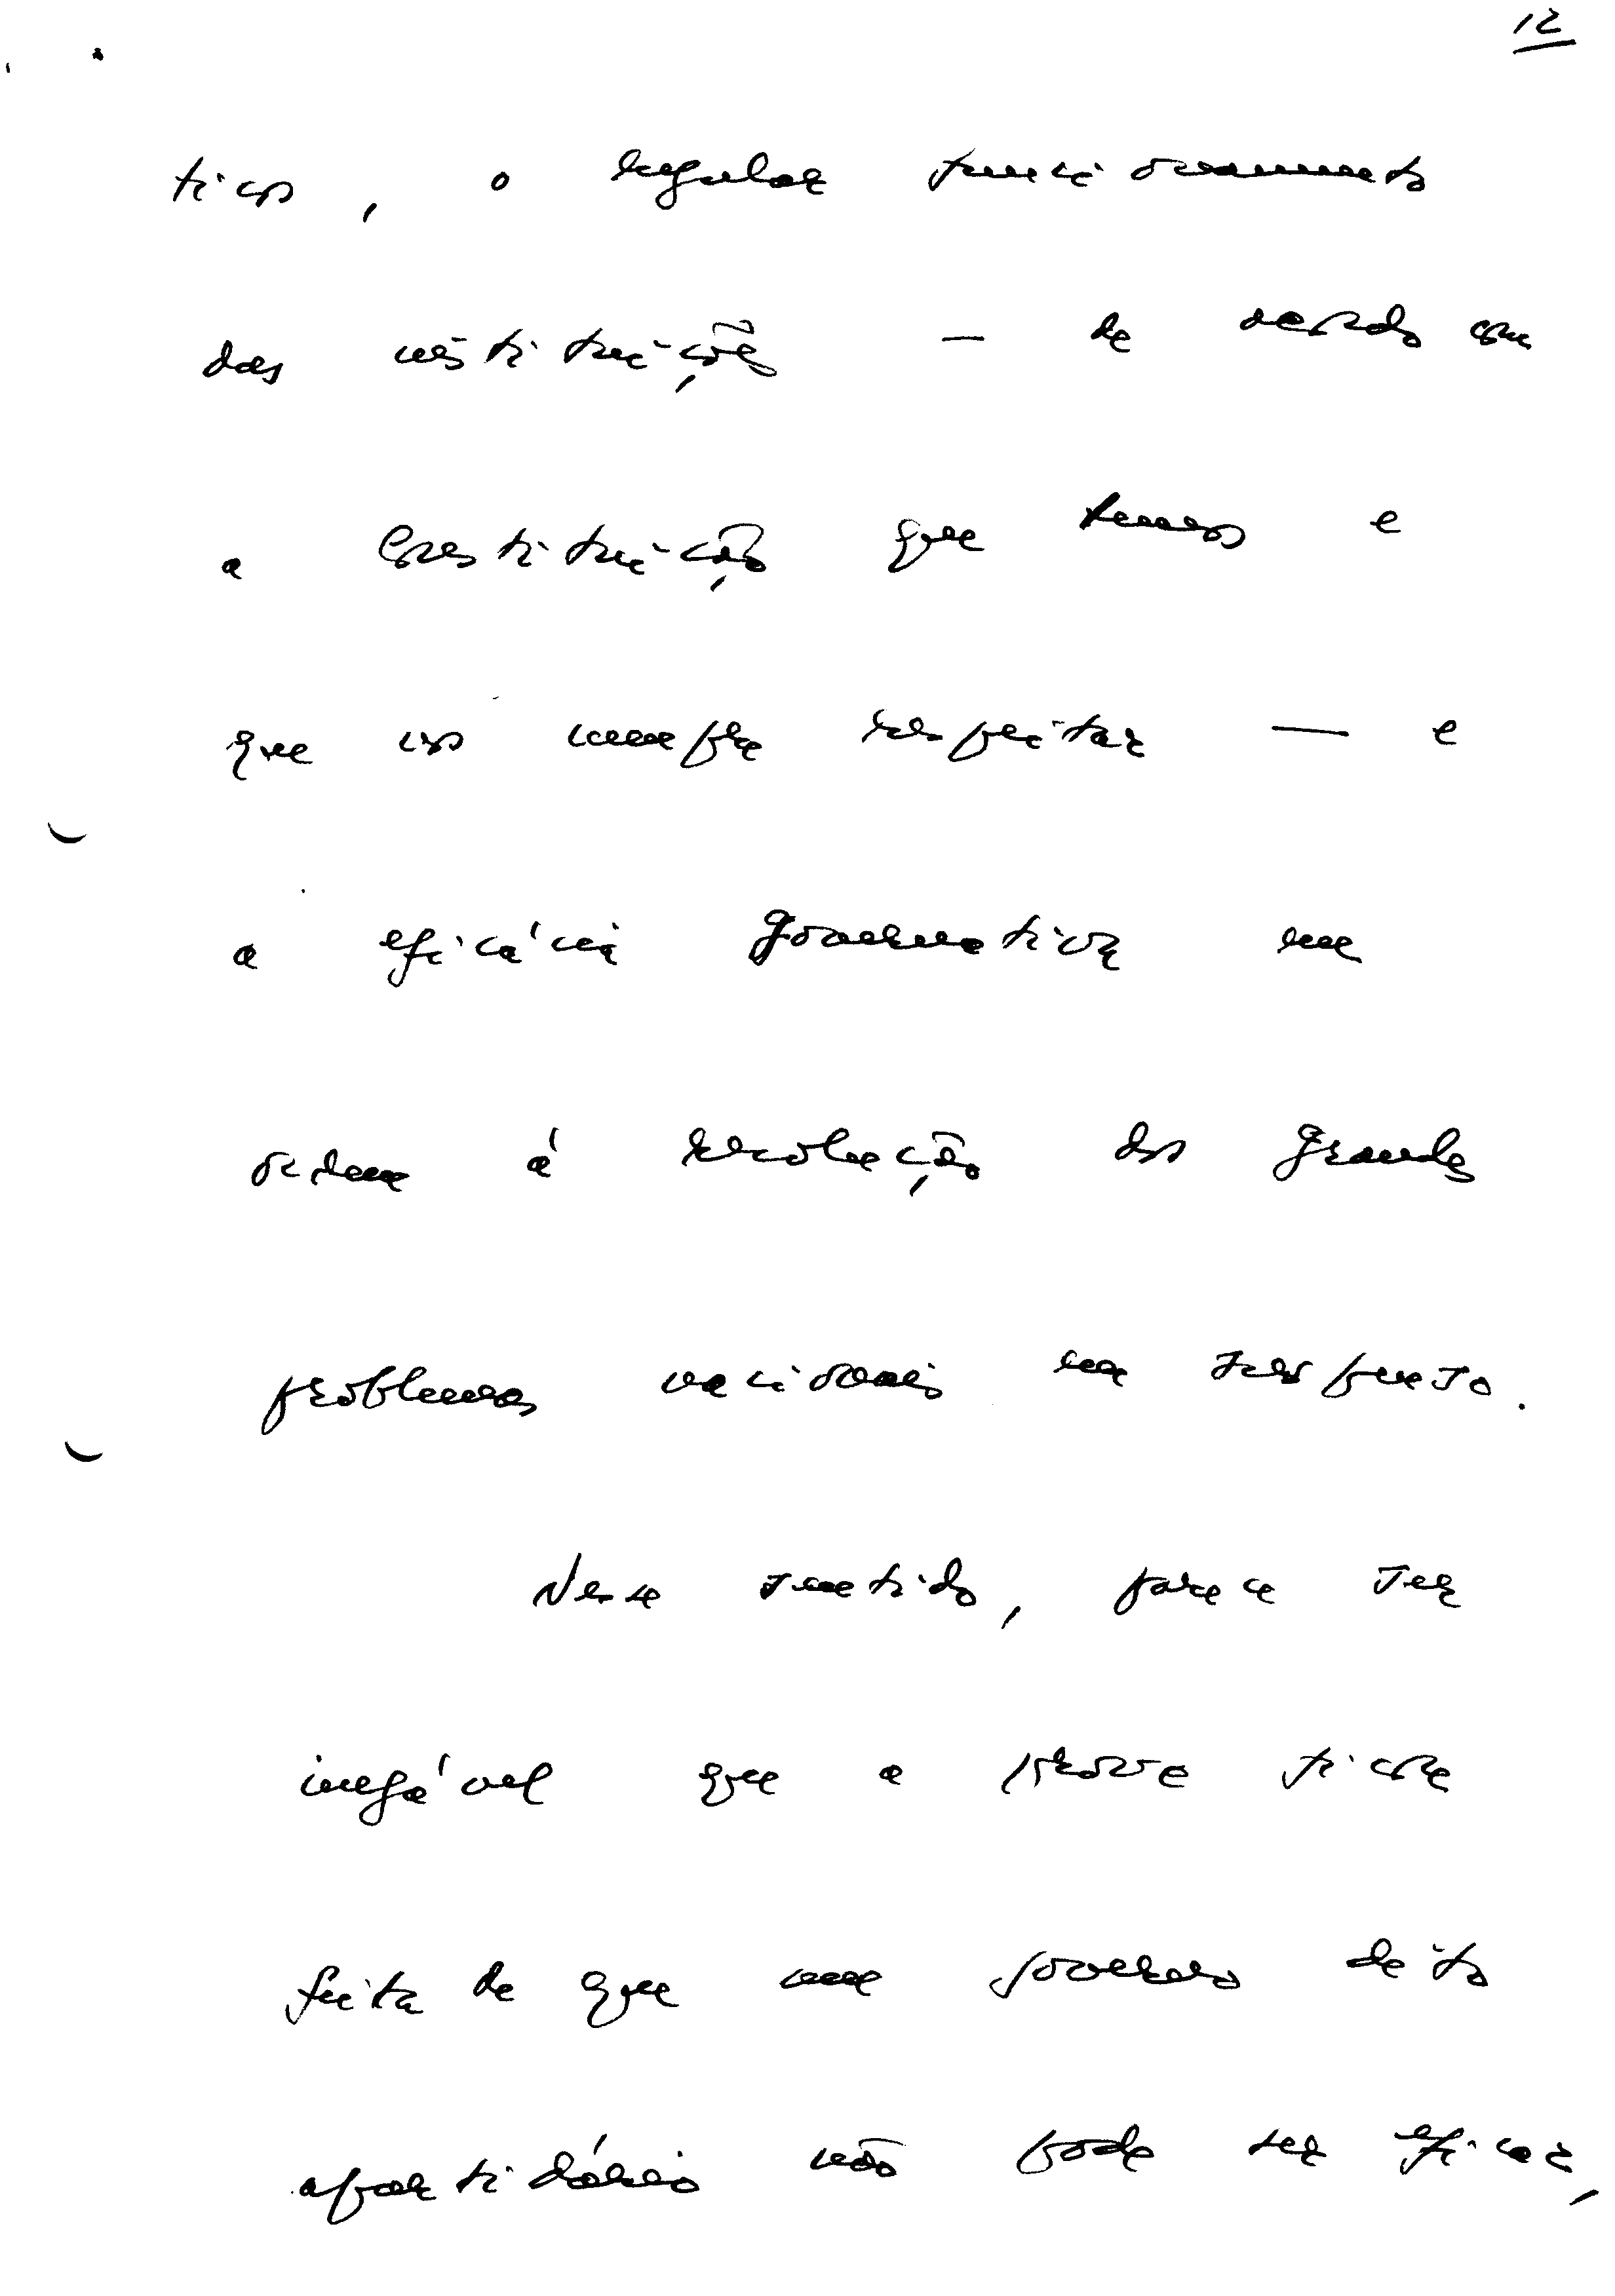 12
ticos, o regular funcionamento
das instituições — de acordo com
a Constituição que temos e
que nos cumpre respeitar — e
a eficácia governativa em
ordem à resolução dos grandes
problemas nacionais em suspenso.
Nesse sentido, parece ser
inegável que a prova ficou
feita de que um governo dito
apartidário não pode ser eficaz,